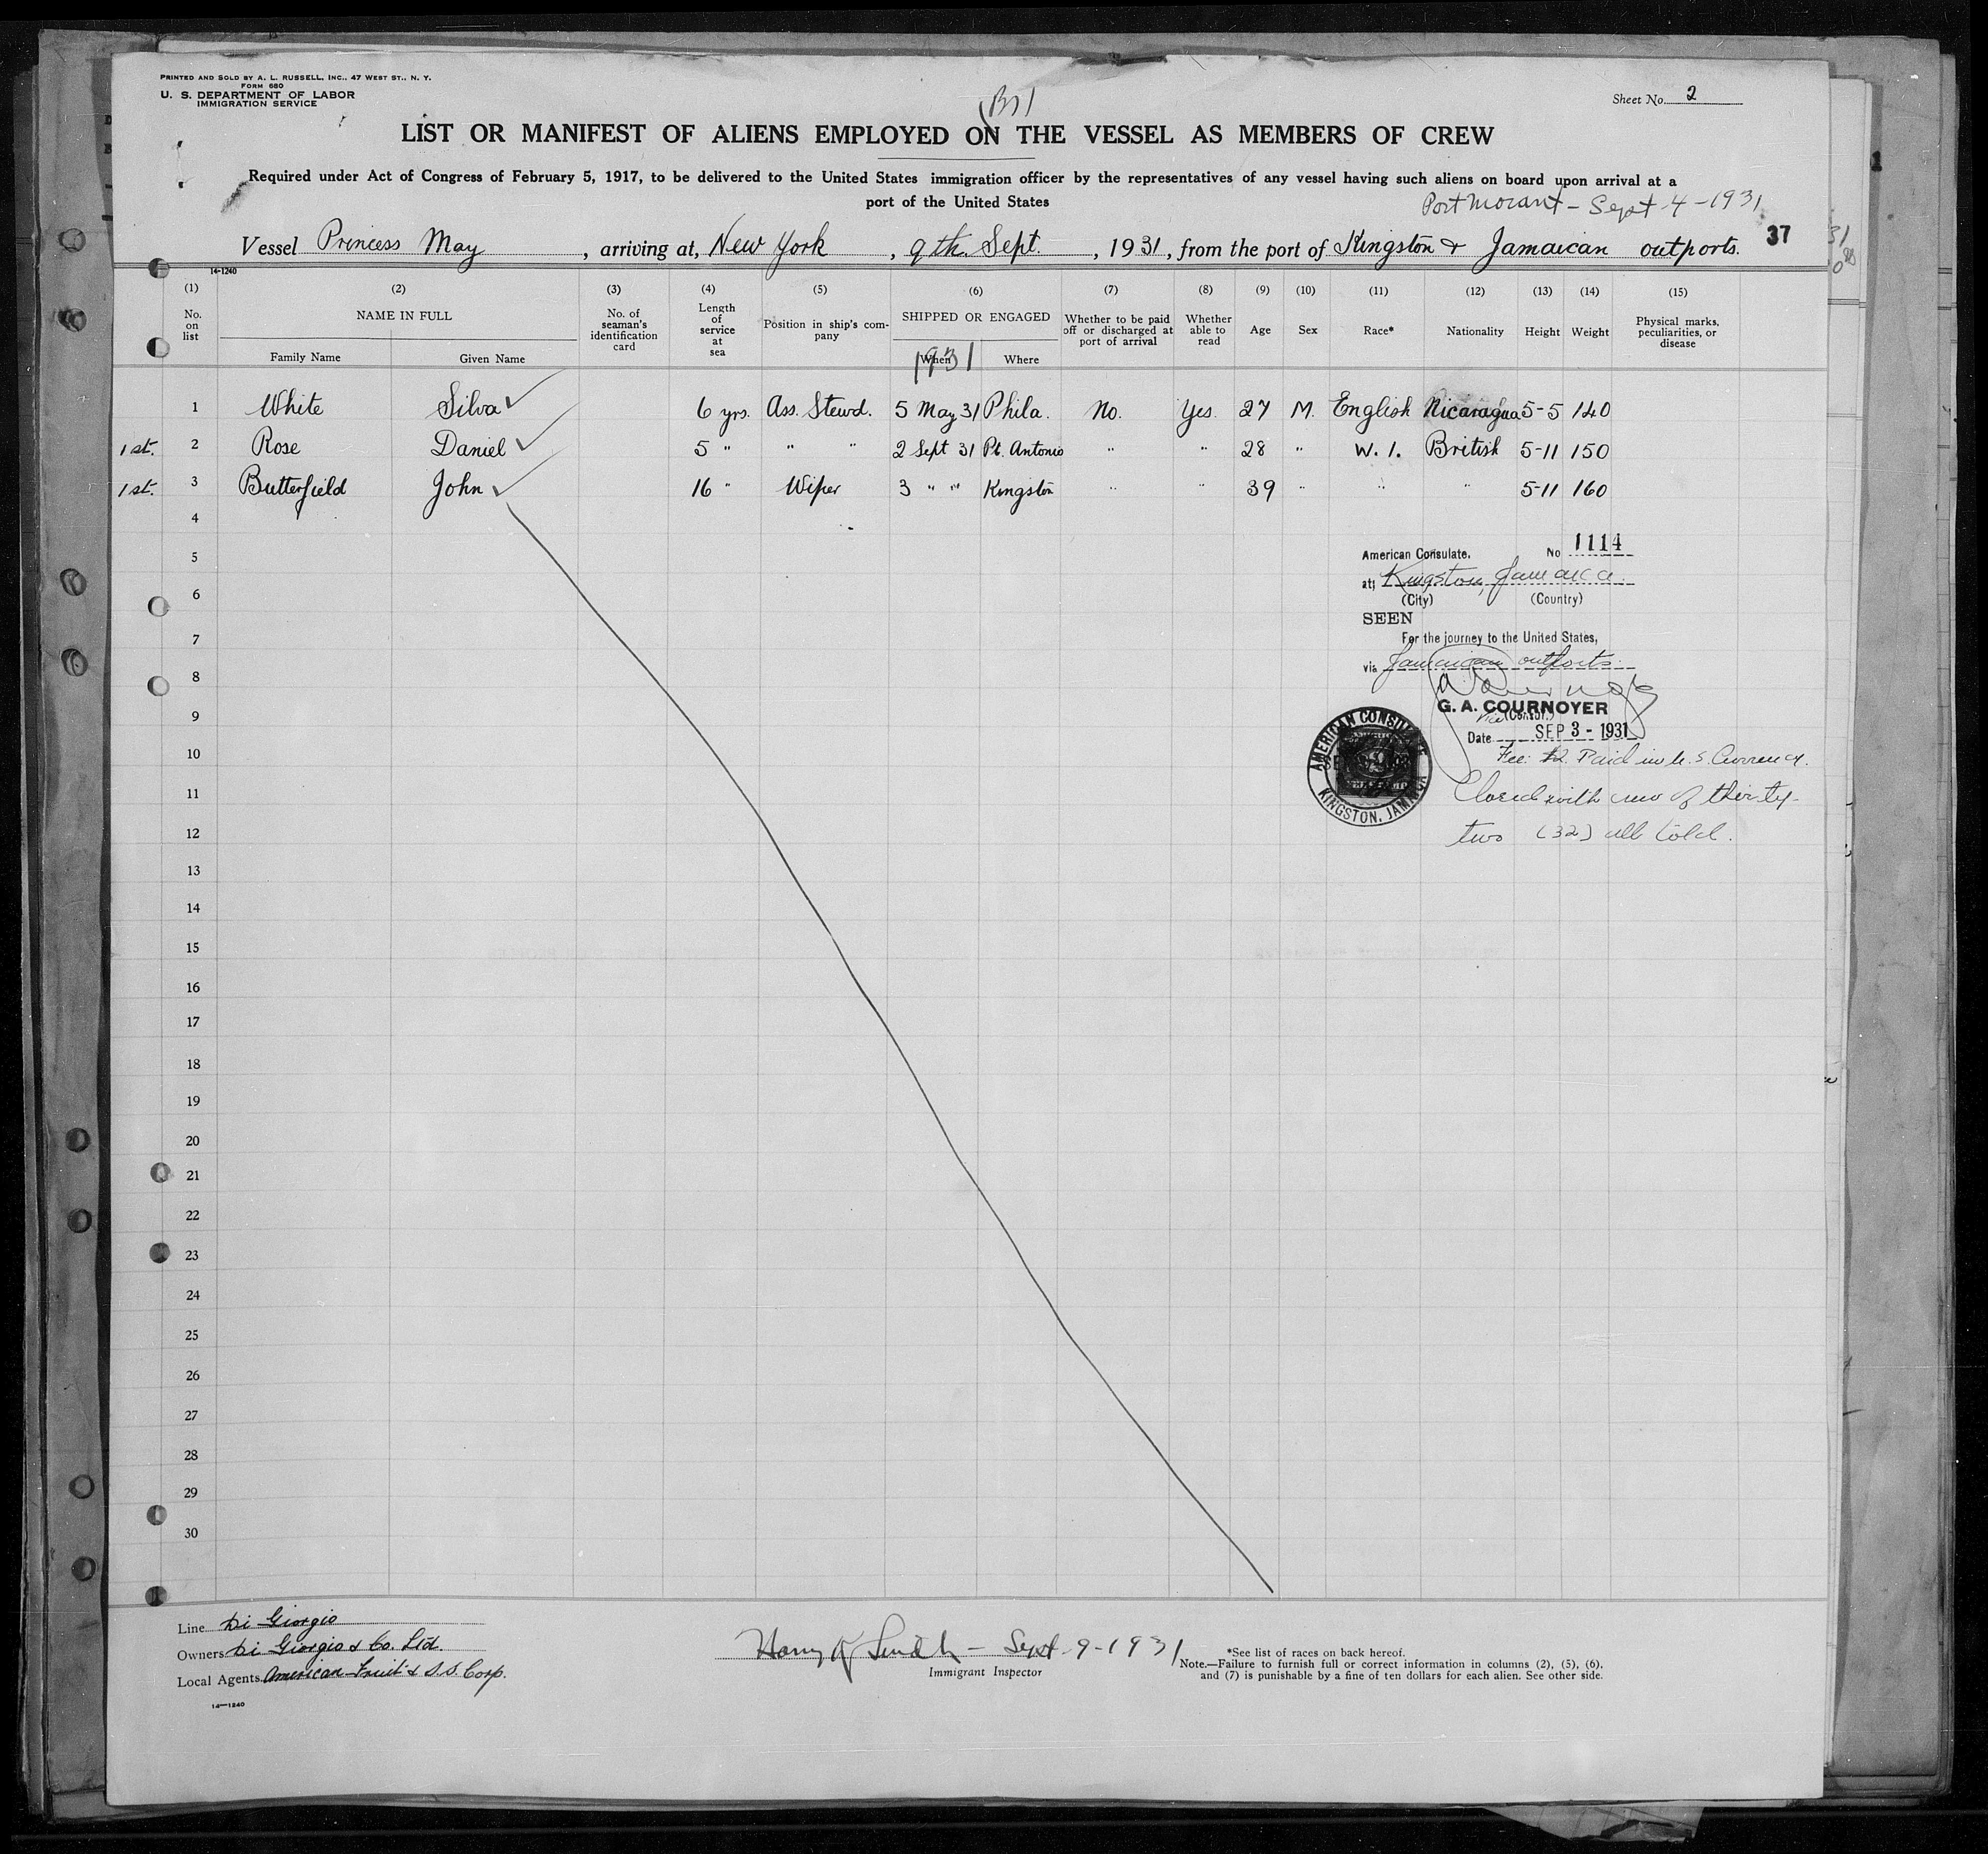 PRINTED AND SOLD BY A. L. RUSSELL, INC., 47 WEST ST., N. Y.
FORM 680
U. S. DEPARTMENT OF LABOR
IMMIGRATION SERVICE
Sheet No. 2
LIST OR MANIFEST OF ALIENS EMPLOYED ON THE VESSEL AS MEMBERS OF CREW
Required under Act of Congress of February 5, 1917, to be delivered to the United States immigration officer by the representatives of any vessel having such aliens on board upon arrival at a
port of the United States
Port Morant - Sept 4 - 1931
Vessel Princess May, arriving at, New York, 9th. Sept., 1931, from the port of Kingston & Jamaican outports.
37
14-1240
(1) (2) (3) (4) (5) (6) (7) (8) (9) (10) (11) (12) (13) (14) (15)
No. on list
NAME IN FULL
Family Name Given Name
No. of seaman's identification card
Length of service at sea
Position in ship's company
SHIPPED OR ENGAGED
When Where
1931
Whether to be paid off or discharged at port of arrival
Whether able to read
Age Sex Race* Nationality Height Weight
Physical marks, peculiarities, or disease
1 White Silva 6 yrs. Ass. Stewd. 5 May 31 Phila. No. Yes. 27 M. English Nicaragua 5-5 140
1st. 2 Rose Daniel 5 " " " 2 Sept 31 Pt. Antonio " " 28 " W. I. British 5-11 150
1st. 3 Butterfield John 16 " Wiper 3 " " Kingston " " 39 " " " 5-11 160
4
5
6
7
8
9
10
11
12
13
14
15
16
17
18
19
20
21
22
23
24
25
26
27
28
29
30
American Consulate. No 1114
at Kingston, Jamaica
(City) (Country)
SEEN
For the journey to the United States,
via Jamaican outports.
G. A. COURNOYER
Vice (Consul.)
Date SEP 3 - 1931
Fee: $2. Paid in U. S. Currency.
Closed with crew of thirty-
two (32) all told.
AMERICAN CONSULATE
KINGSTON, JAMAICA
Line Di Giorgio
Owners Di Giorgio & Co. Ltd.
Local Agents American Fruit & S.S. Corp.
14-1240
Harry K Smith - Sept 9 - 1931
Immigrant Inspector
*See list of races on back hereof.
Note.—Failure to furnish full or correct information in columns (2), (5), (6),
and (7) is punishable by a fine of ten dollars for each alien. See other side.